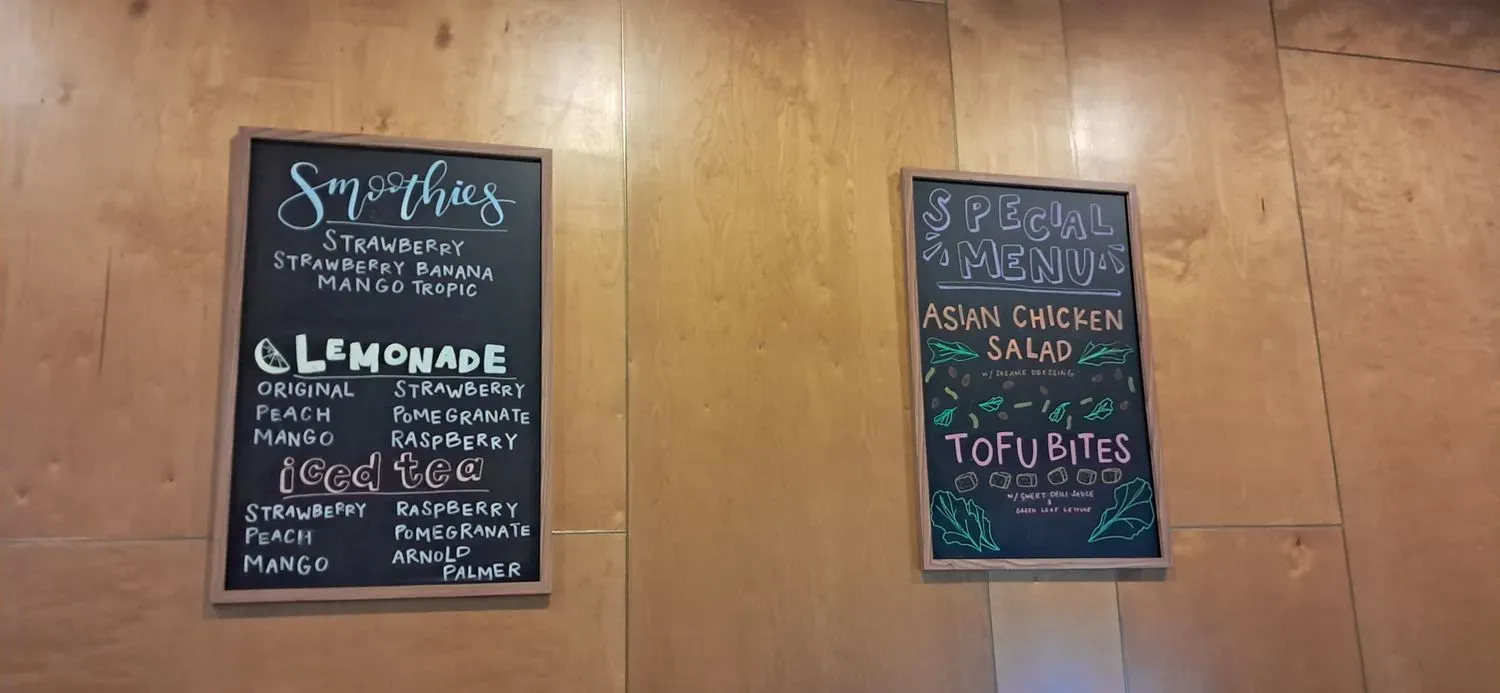 Smoothies
STRAWBERRY
STRAWBERRY BANANA
MANGO TROPIC
LEMONADE
ORIGINAL STRAWBERRY
PEACH POMEGRANATE
MANGO RASPBERRY
iced tea
STRAWBERRY RASPBERRY
PEACH POMEGRANATE
MANGO ARNOLD
PALMER
SPECIAL
MENU
ASIAN CHICKEN
SALAD
W/ SESAME DRESSING
TOFU BITES
W/ SWEET CHILI SAUCE
&
GREEN LEAF LETTUCE